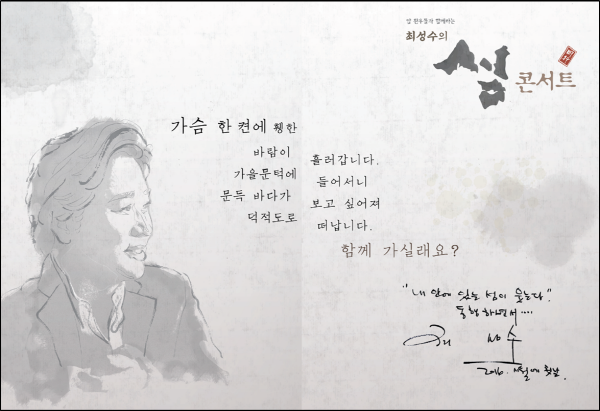 암 환우들과 함께하는
최성수의
섬
콘서트
가슴 한 켠에 휑한
바람이 흘러갑니다.
가을문턱에 들어서니
문득 바다가 보고 싶어져
덕적도로 떠납니다.
함께 가실래요?
"내 안에 있는 섬이 묻는다."
동행하면서....
최성수
2016.